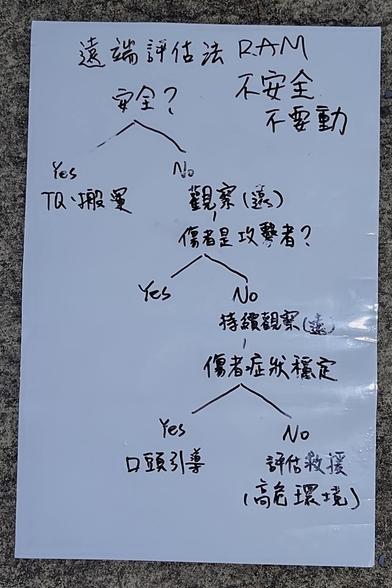 遠端評估法 RAM
不安全
不要動
安全？
Yes
No
TQ、搬運
觀察（遠）
傷者是攻擊者？
Yes
No
持續觀察（遠）
傷者症狀穩定
Yes
No
口頭引導
評估救援
（高危環境）